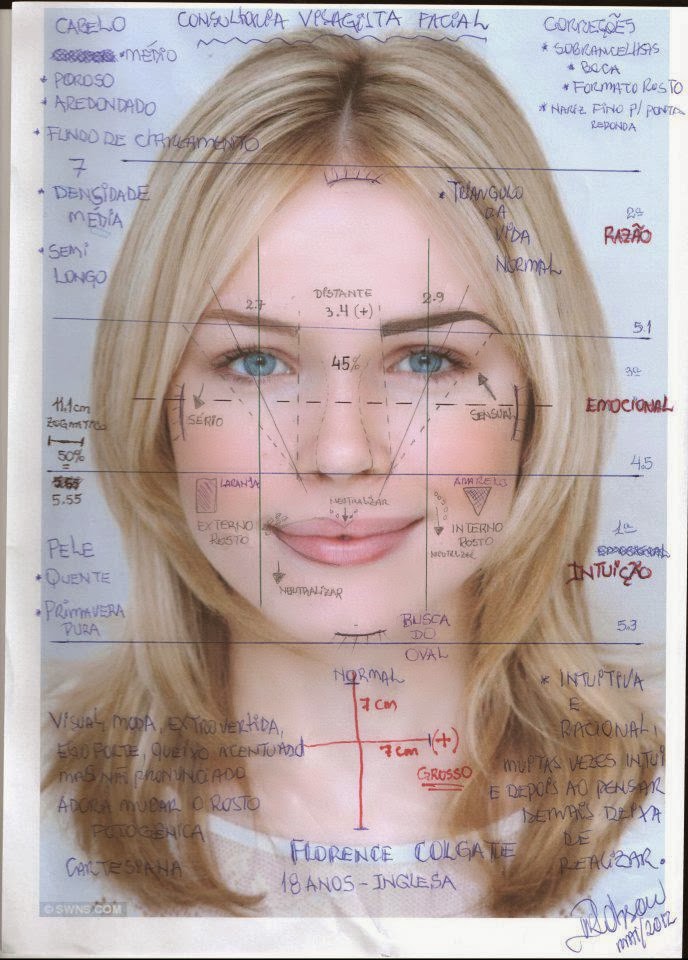 CONSULTORIA VISAGISTA FACIAL
CABELO
* MÉDIO
* POROSO
* AREDONDADO
* FUNDO DE CLAREAMENTO
7
* DENSIDADE
MÉDIA
* SEMI
LONGO
CORREÇÕES
* SOBRANCELHAS
* BOCA
* FORMATO ROSTO
* NARIZ FINO P/ PONTA
REDONDA
* TRIANGULO
DA
VIDA
NORMAL
2ª
RAZÃO
DISTANTE
3.4 (+)
2.7
2.9
5.1
45%
3ª
EMOCIONAL
SÉRIO
SENSUAL
11.1cm
ZIGMATICO
50%
5.55
4.5
LARANJA
AMARELO
NEUTRALIZAR
EXTERNO
ROSTO
INTERNO
ROSTO
NEUTRALIZAR
NEUTRALIZAR
1ª
INTUIÇÃO
PELE
* QUENTE
* PRIMAVERA
PURA
BUSCA
DO
OVAL
5.3
NORMAL
7cm
7cm (+)
GROSSO
VISUAL, MODA, EXTROVERTIDA,
FORTE, QUEIXO ACENTUADO
MAS NÃO PRONUNCIADO
ADORA MUDAR O ROSTO
FOTOGÊNICA
CARTESIANA
* INTUITIVA
E
RACIONAL,
MUITAS VEZES INTUI
E DEPOIS AO PENSAR
DEMAIS DEIXA
DE
REALIZAR.
FLORENCE COLGATE
18 ANOS - INGLESA
© SWNS.COM
MAI/2012